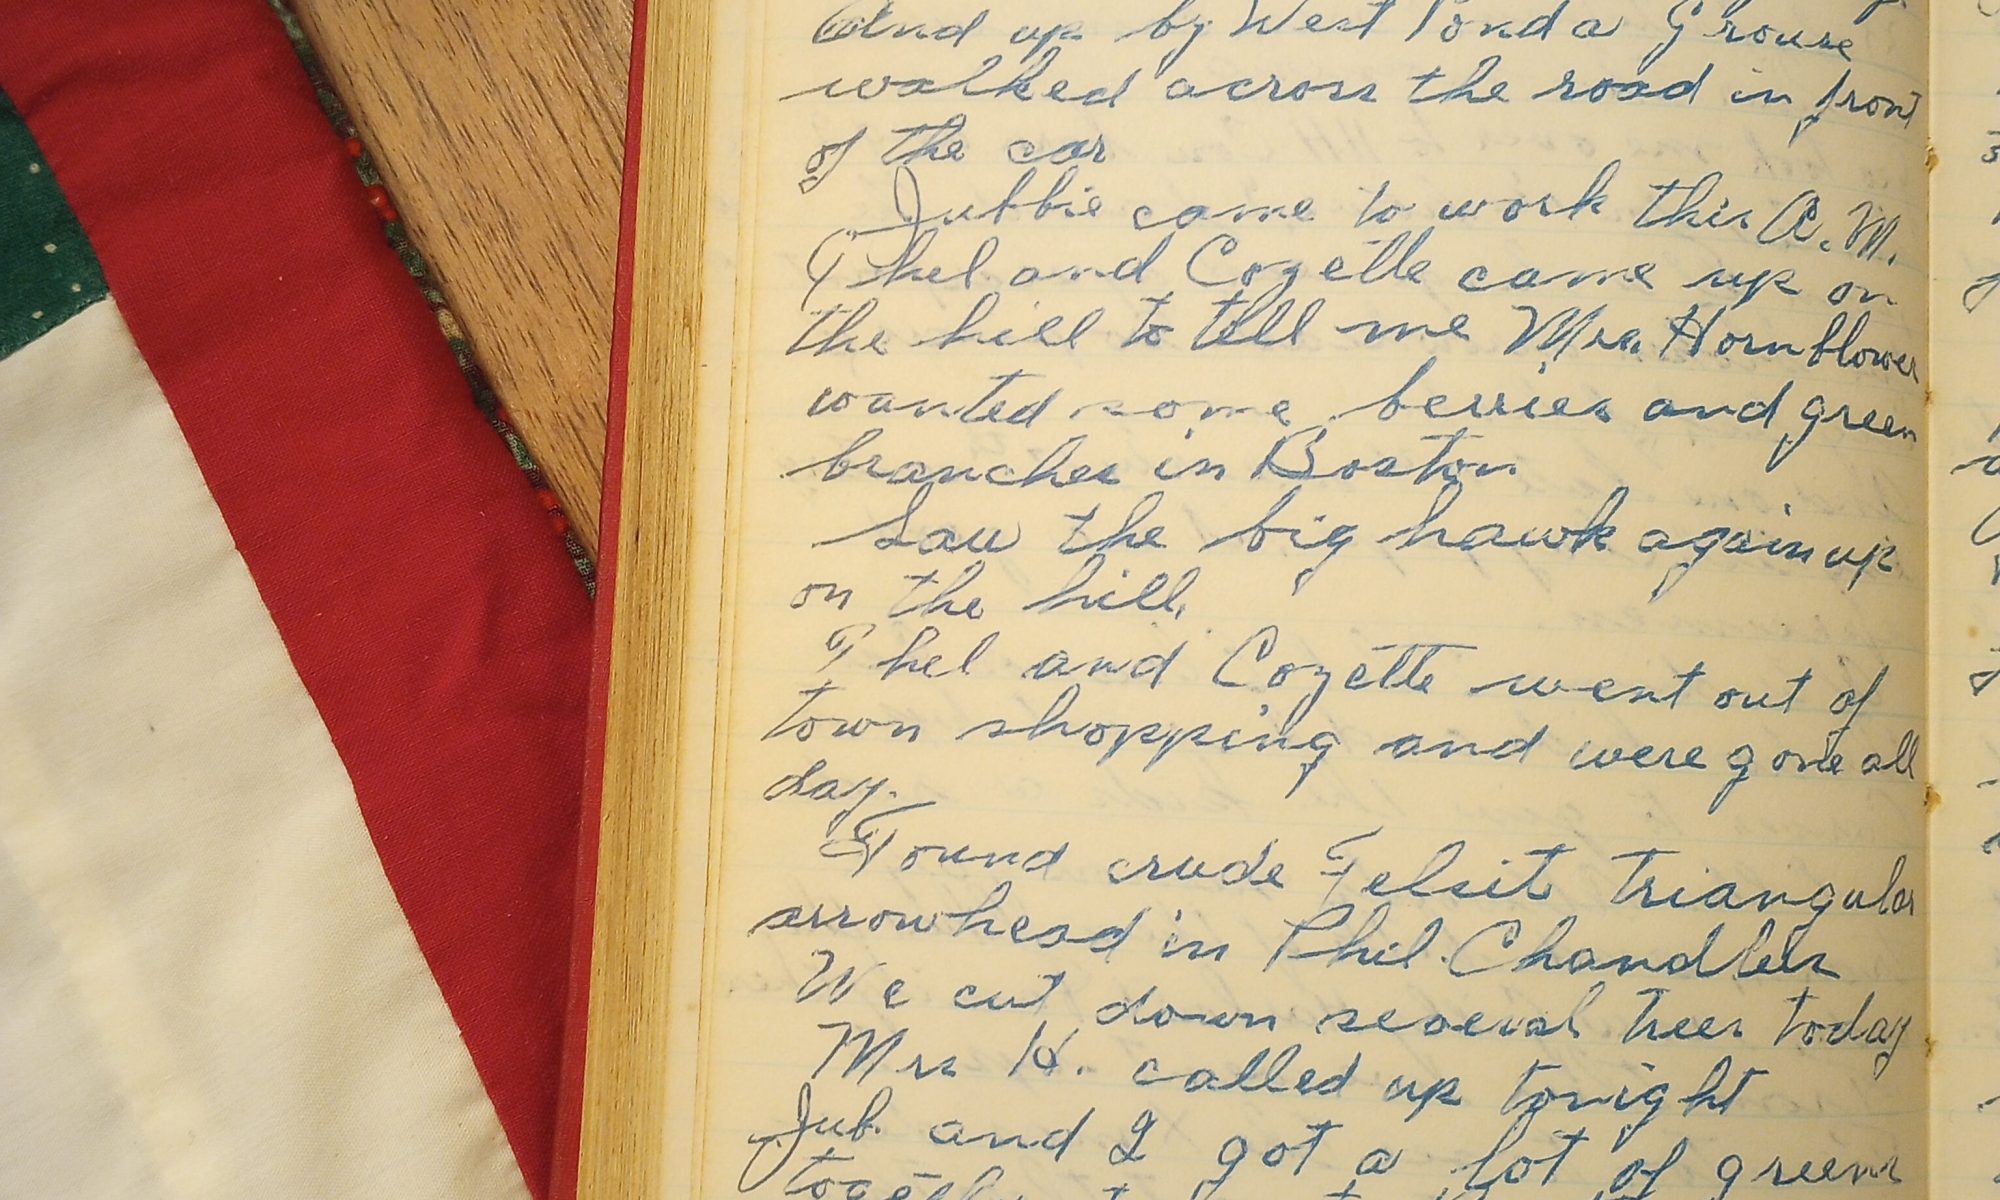 and up by West Pond a Grouse
walked across the road in front
of the car
Jubbie came to work this A.M.
Thel and Cozette came up on
the hill to tell me Mrs. Hornblower
wanted some berries and green
branches in Boston
Saw the big hawk again up
on the hill.
Thel and Cozette went out of
town shopping and were gone all
day.
Found crude Felsit triangular
arrowhead in Phil Chandlers
We cut down several trees today
Mrs H. called up tonight
Jub. and I got a lot of greens